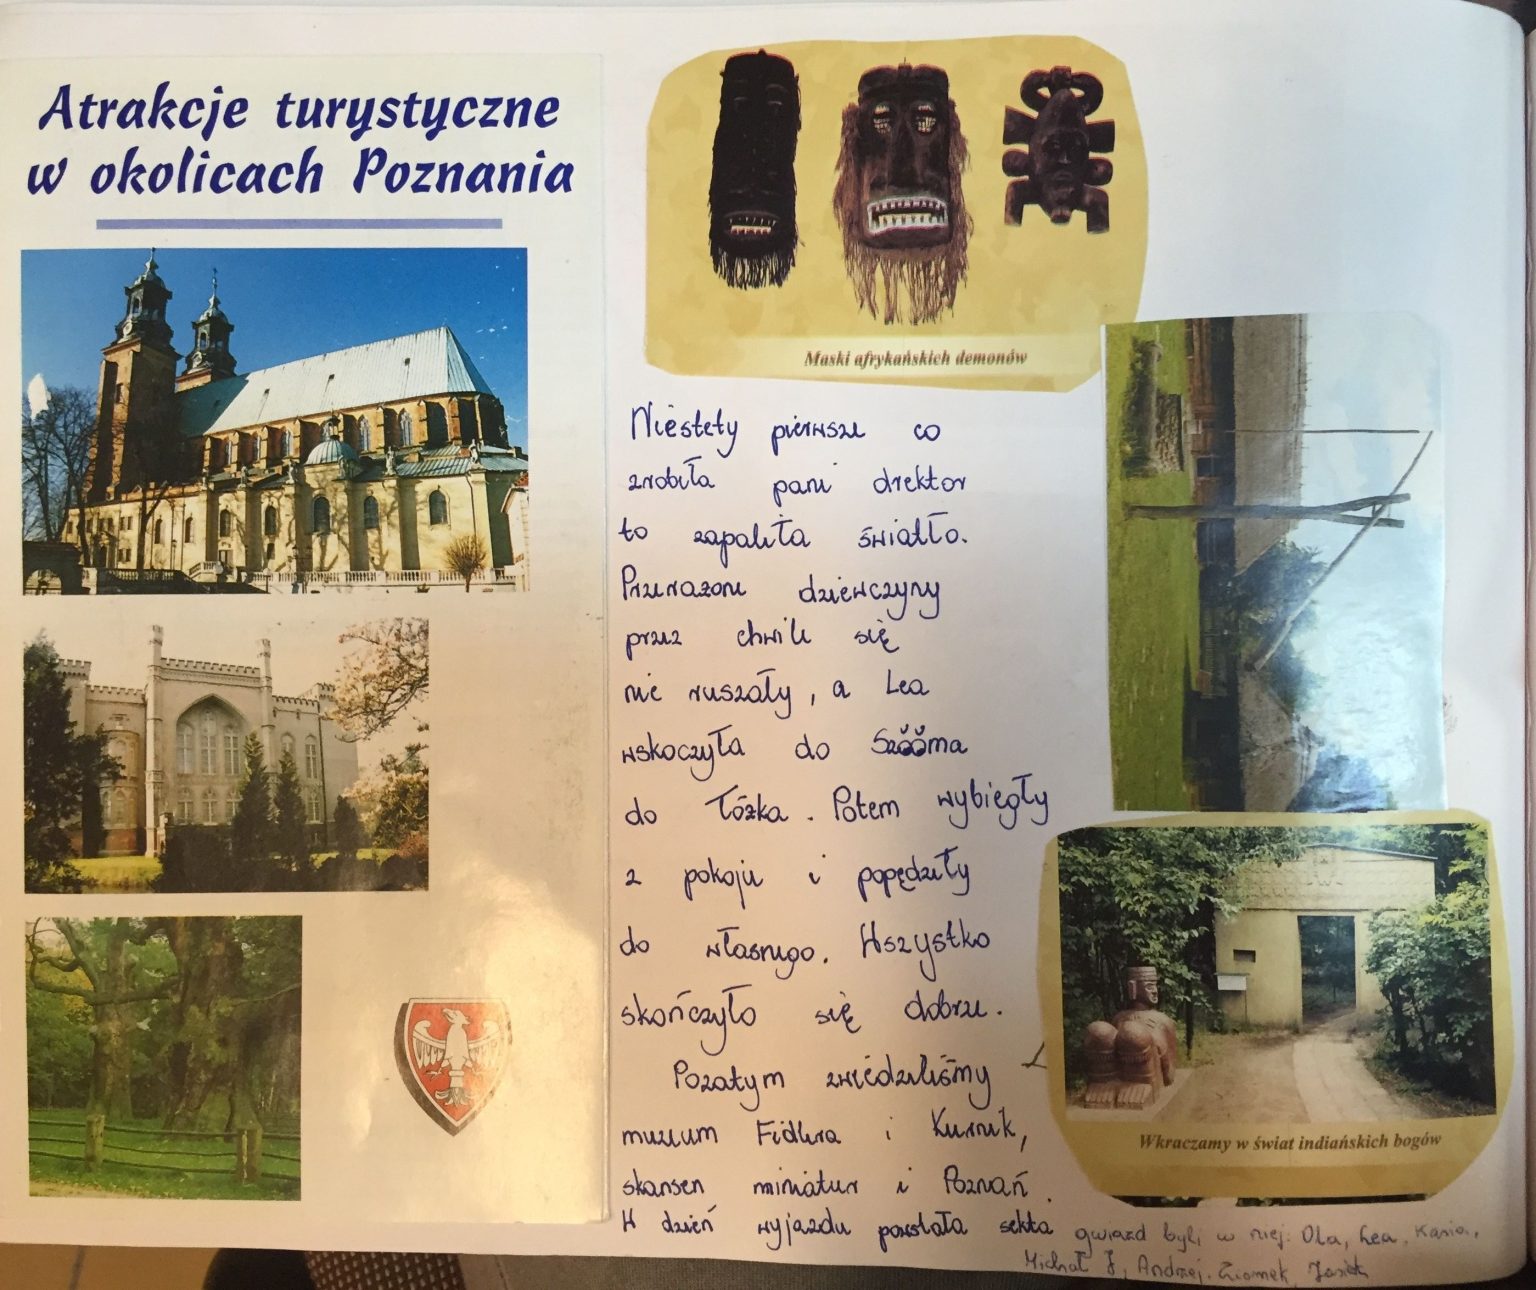 Atrakcje turystyczne
w okolicach Poznania
Maski afrykańskich demonów
Niestety pierwsze co
zrobiła pani drektor
to zapaliła światło.
Przerażone dziewczyny
przez chwile się
nie ruszały, a Lea
wskoczyła do
do łóżka. Potem wybiegły
z pokoju i popędziły
do własnego. Wszystko
skończyło się dobrze.
Pozatym zwiedziliśmy
muzeum Fidlera i Kurnik,
skansen miniatur i Poznań.
W dzień wyjazdu powstała sekta gwiazd byli w niej: Ola, Lea, Kasia,
Michał J, Andrzej, Ziomek, Jasiek
Wkraczamy w świat indiańskich bogów